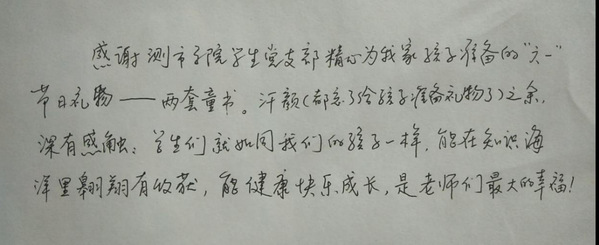 感谢测市学院学生党支部精心为我家孩子准备的“六一”
节日礼物——两套童书。汗颜(都忘了给孩子准备礼物了)之余,
深有感触:学生们就如同我们的孩子一样,能在知识海
洋里翱翔有收获,能健康快乐成长,是老师们最大的幸福!